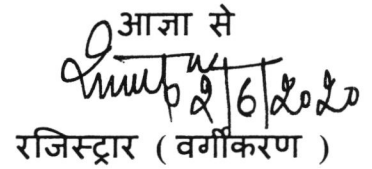 आज्ञा से
2/6/2020
रजिस्ट्रार ( वर्गीकरण )